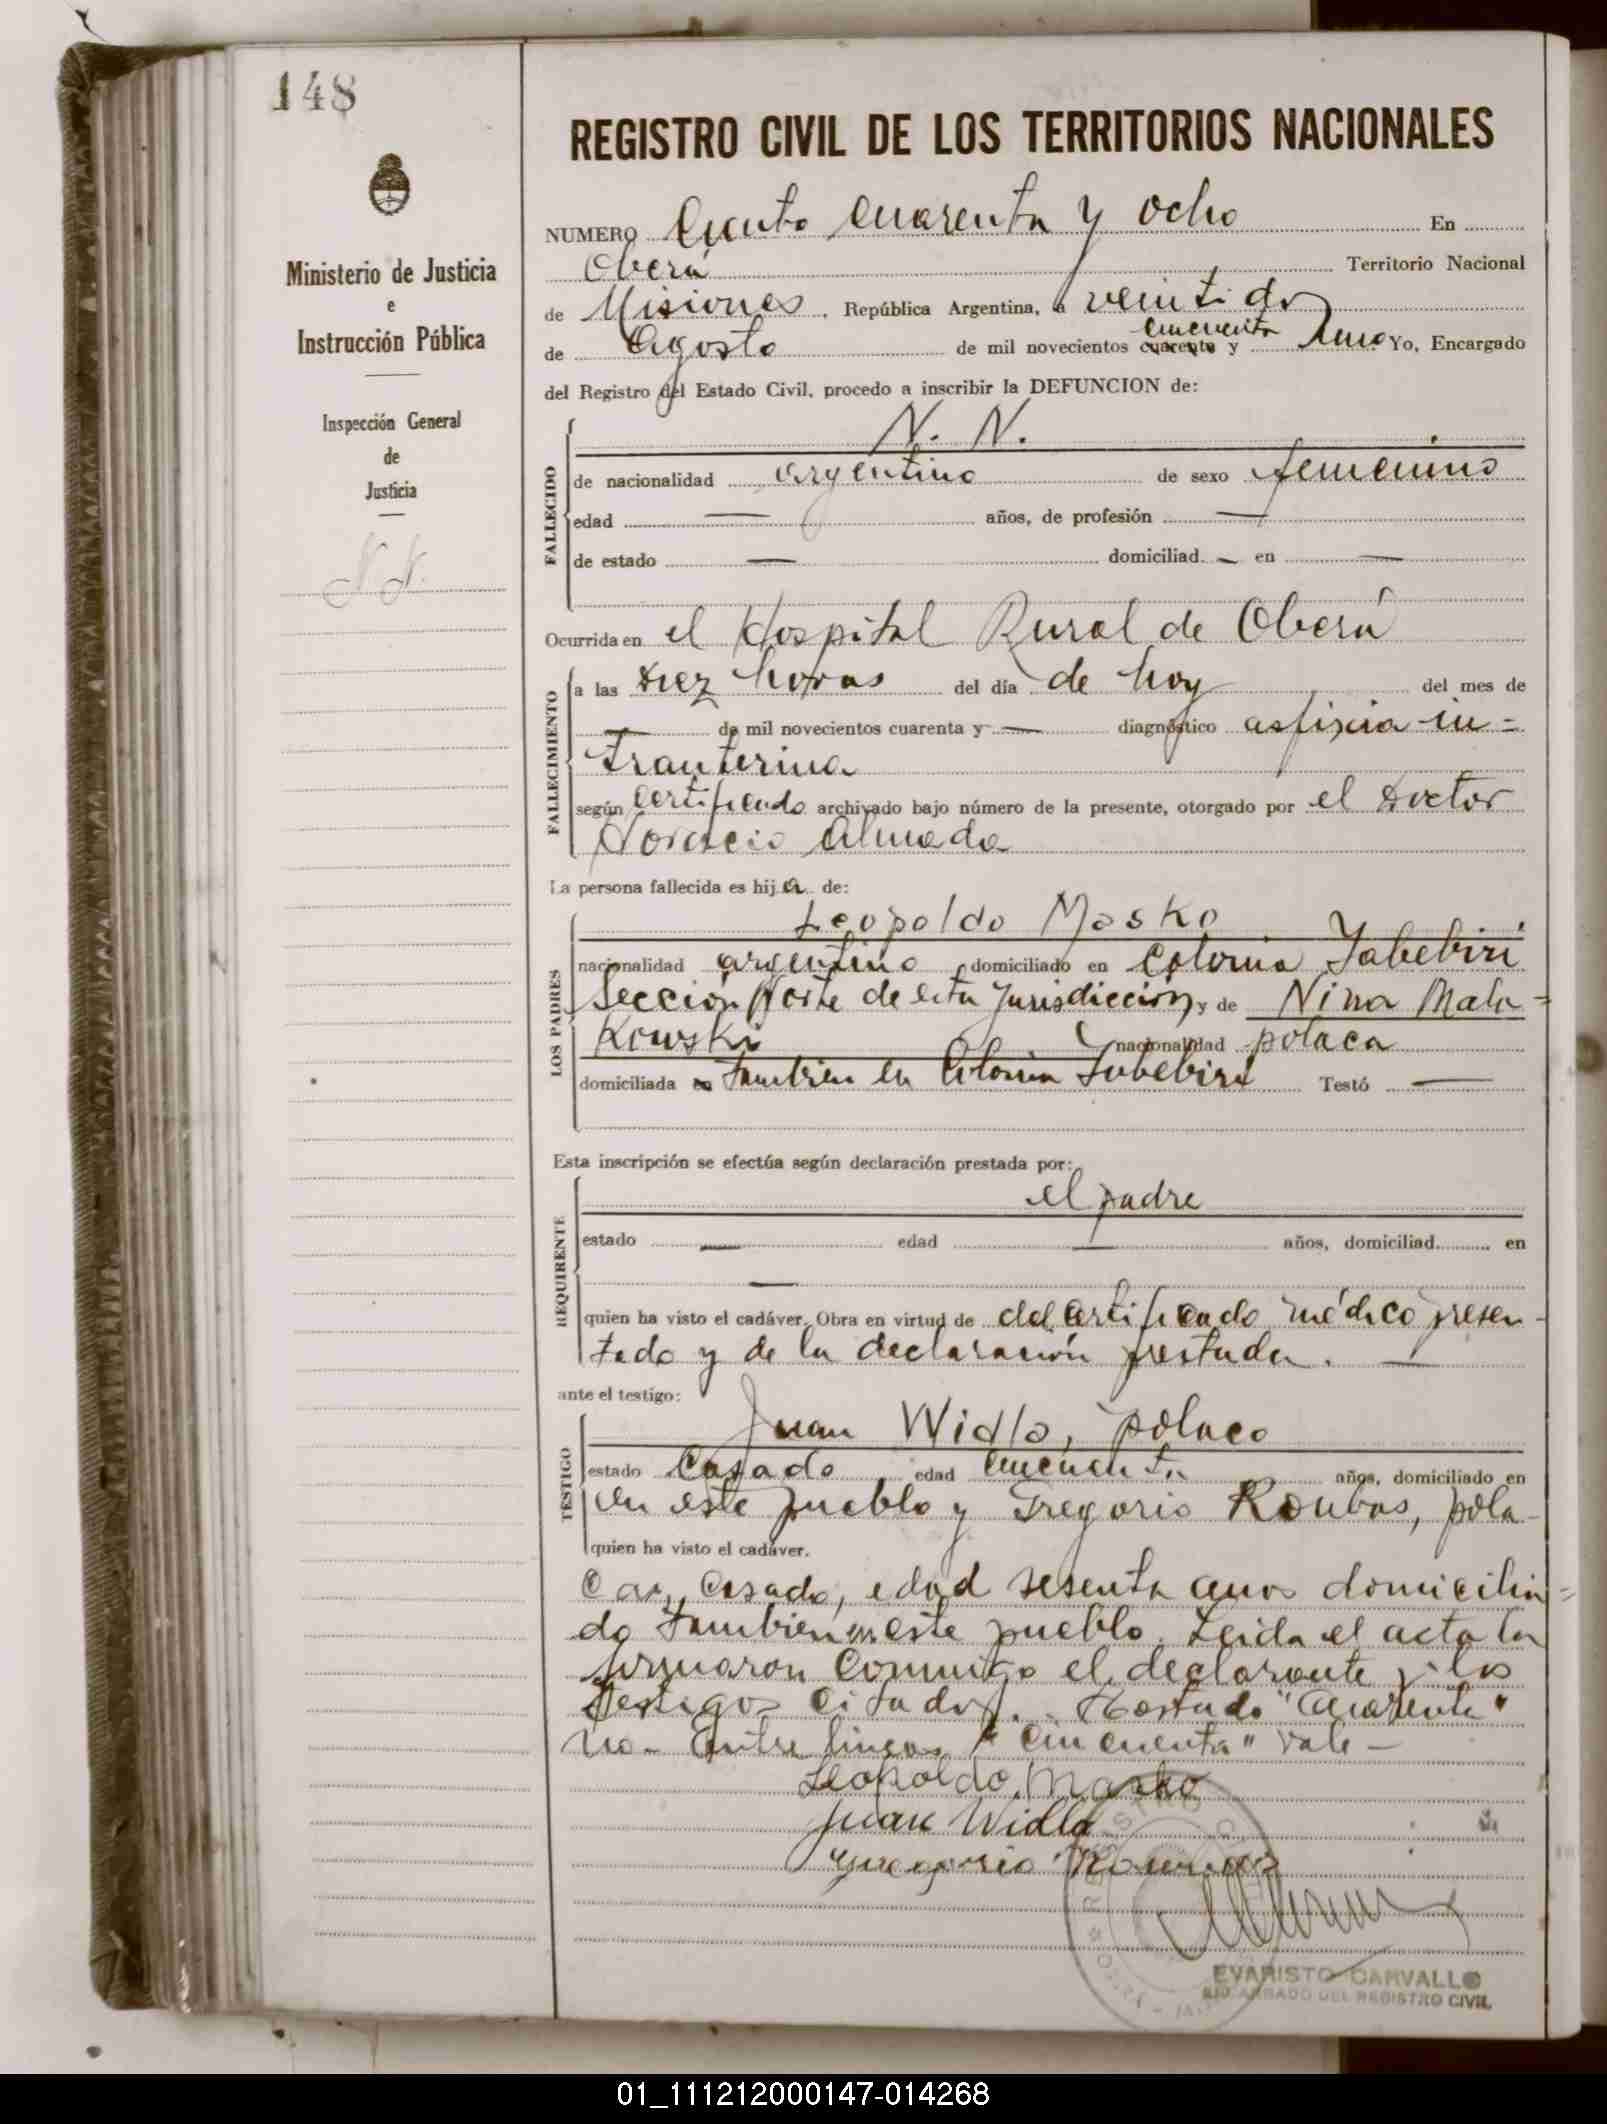 148
Ministerio de Justicia
e
Instrucción Pública
Inspección General
de
Justicia
N. N.
REGISTRO CIVIL DE LOS TERRITORIOS NACIONALES
NUMERO Ciento cuarenta y ocho En
Oberá Territorio Nacional
de Misiones, República Argentina, a veintidos
cincuenta
de Agosto de mil novecientos cuarenta y uno Yo, Encargado
del Registro del Estado Civil, procedo a inscribir la DEFUNCION de:
FALLECIDO
N. N.
de nacionalidad argentino de sexo femenino
edad — años, de profesión —
de estado — domiciliad. — en —
Ocurrida en el Hospital Rural de Oberá
FALLECIMIENTO
a las diez horas del día de hoy del mes de
— de mil novecientos cuarenta y — diagnóstico asfixia in=
tranterina
según certificado archivado bajo número de la presente, otorgado por el Doctor
Horacio Almada
La persona fallecida es hija de:
LOS PADRES
Leopoldo Masko
nacionalidad argentino domiciliado en Colonia Yabebiri
Sección Norte de esta Jurisdicción y de Nina Mala=
Kowski nacionalidad polaca
domiciliada en tambien en Colonia Yabebiri Testó —
Esta inscripción se efectúa según declaración prestada por:
REQUIRENTE
el padre
estado — edad — años, domiciliad. en
—
quien ha visto el cadáver. Obra en virtud de del certificado médico presen-
tado y de la declaración prestada. —
ante el testigo:
TESTIGO
Juan Widlo, polaco
estado Casado, edad cincuenta años, domiciliado en
en este pueblo y Gregorio Roubas, pola-
quien ha visto el cadáver.
co, casado, edad sesenta anos domicilia=
do tambien en este pueblo. Leida el acta la
firmaron conmigo el declarante y los
testigos citados. Testado "cuarenta"
no- Entre lineas "cincuenta" vale —
Leopoldo Masko
Juan Widla
Gregorio
REGISTRO
EVARISTO CARVALLO
ENCARGADO DEL REGISTRO CIVIL
01_111212000147-014268